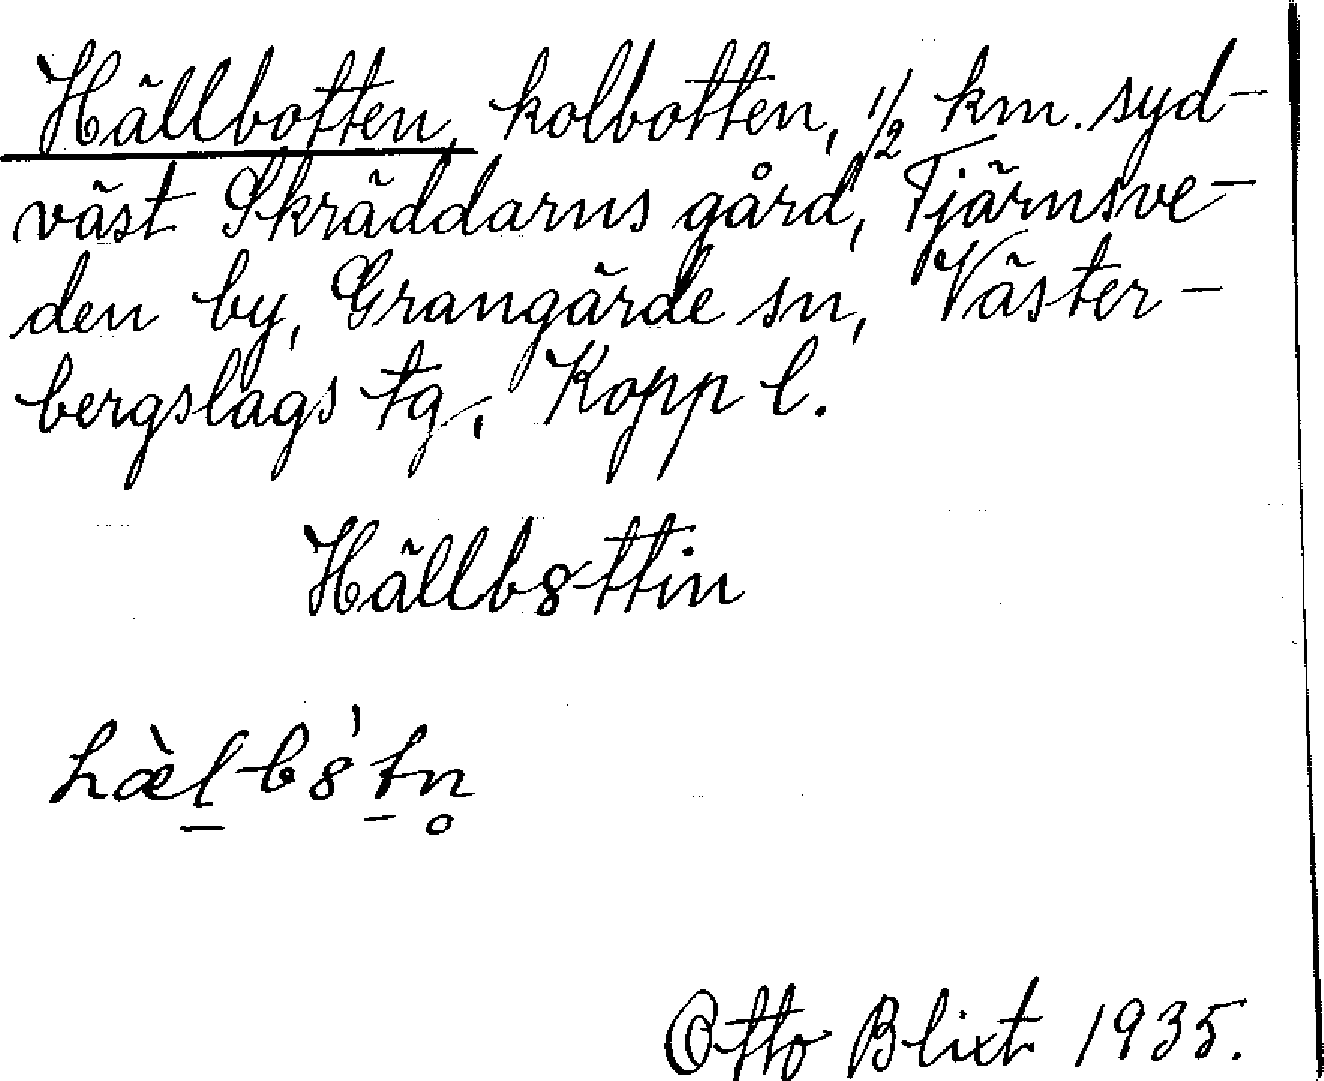 Hällbotten, kolbotten, 1/2 km. syd-
väst Skräddarns gård, Tjärnsve-
den by, Grangärde sn, Väster-
bergslags tg, Kopp l.
Hällb8ttin
hæ̀l̠b8̍t̠n̥
Otto Blixt 1935.